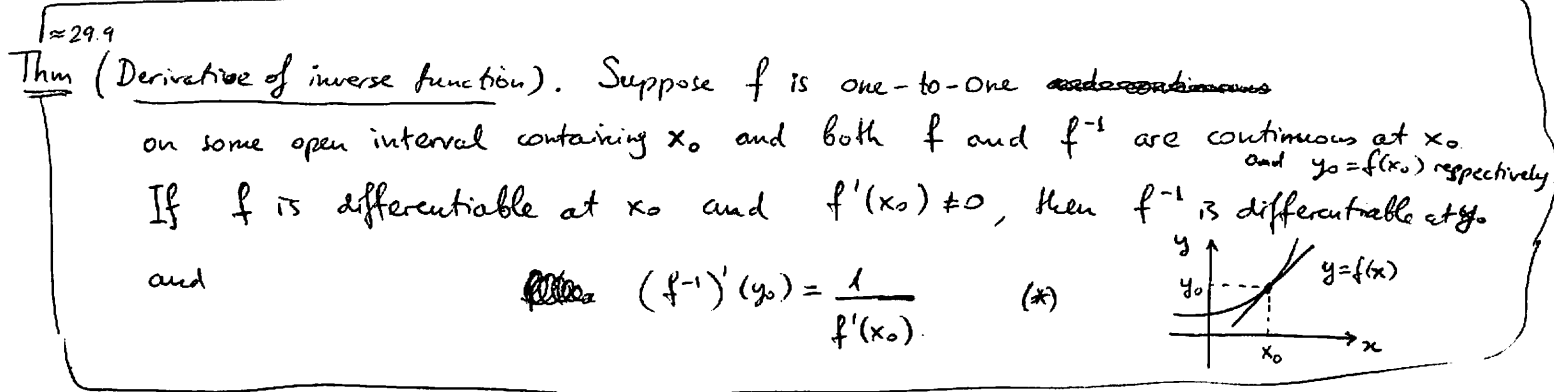 ≈ 29.9
Thm (Derivative of inverse function). Suppose f is one-to-one
on some open interval containing x₀ and both f and f⁻¹ are continuous at x₀
and y₀ = f(x₀) respectively
If f is differentiable at x₀ and f'(x₀) ≠ 0, then f⁻¹ is differentiable at y₀
and (f⁻¹)'(y₀) = 1/f'(x₀). (*)
y
y₀
y = f(x)
x₀
x